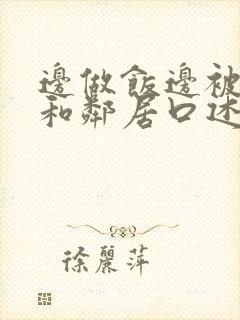 邊做飯邊被
和鄰居口述
徐麗萍